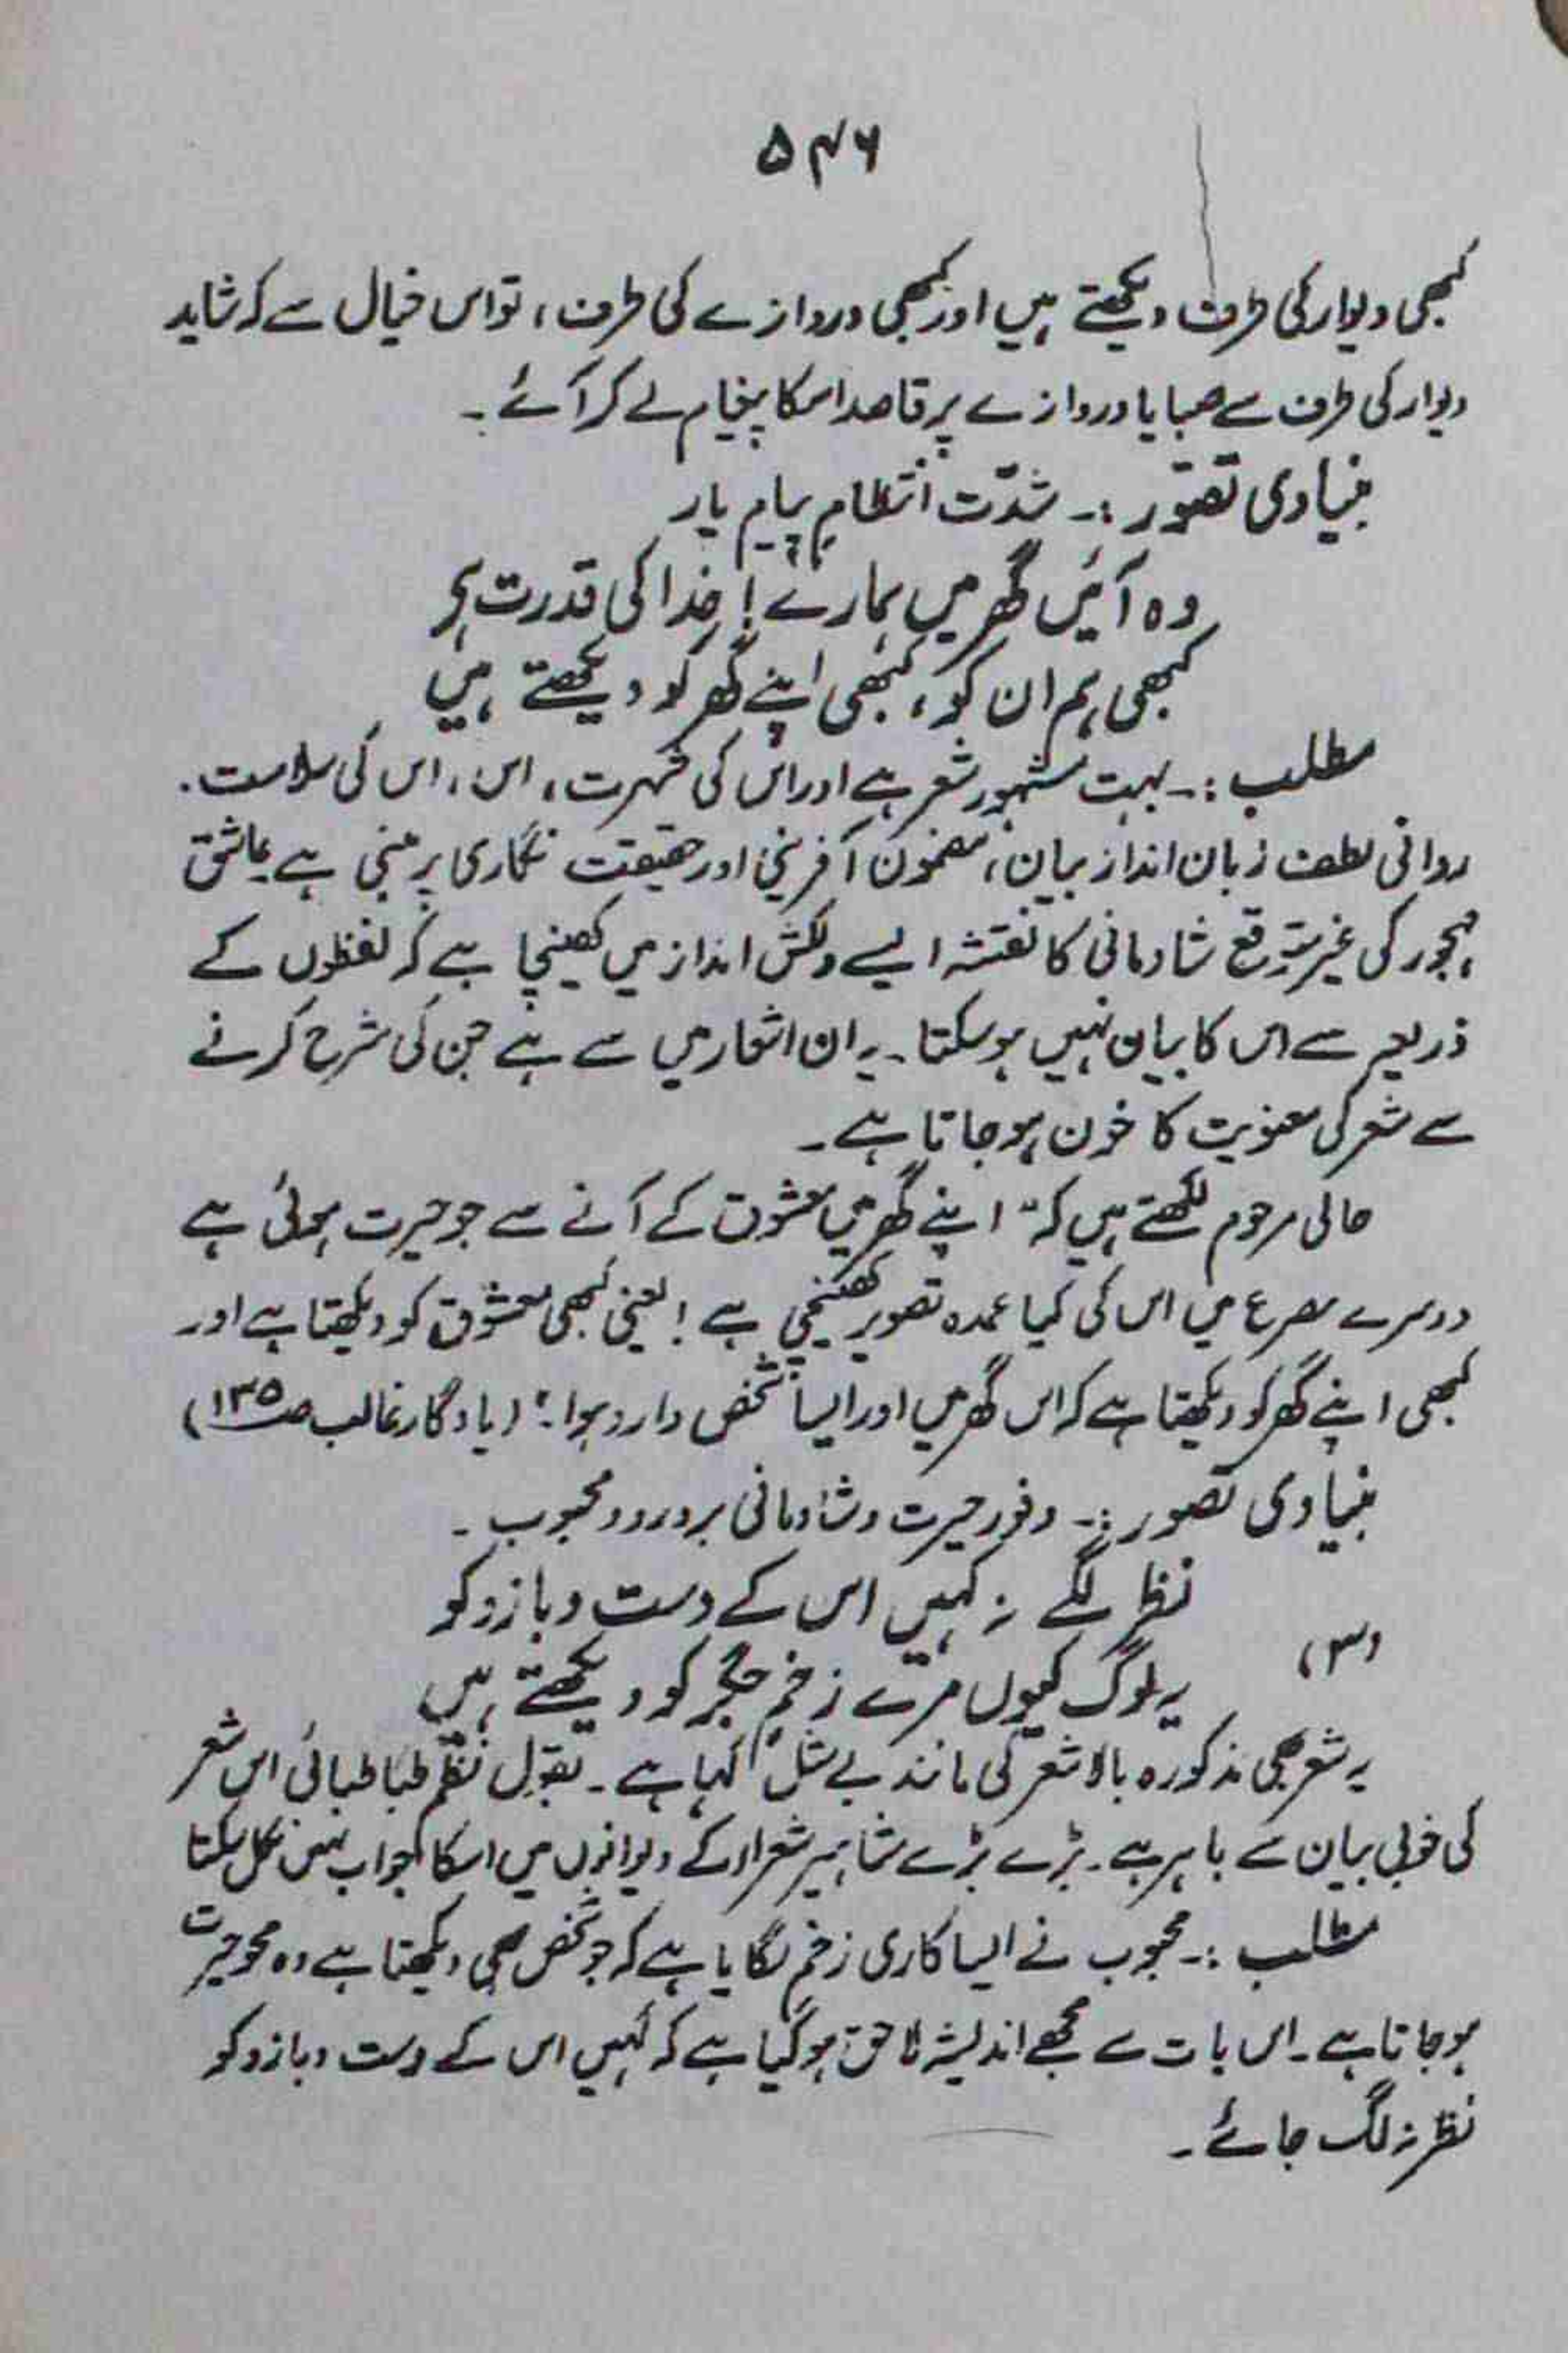 ۵۴۶
کبھی دیوار کی طرف دیکھتے ہیں اور کبھی دروازے کی طرف، تو اس خیال سے کہ شاید
دیوار کی طرف سے صبا یا دروازے پر قاصد اس کا پیغام لے کر آئے۔
بنیادی تصّور :۔ شدّت انتظامِ پیامِ یار
وہ آئیں گھر میں ہمارے! خدا کی قدرت ہے
کبھی ہم ان کو، کبھی اپنے گھر کو دیکھتے ہیں
مطلب :۔ بہت مشہور شعر ہے اور اس کی شہرت، اس، اس کی سلاست۔
روانی لطف زبان انداز بیان، مضمون آفرینی اور حقیقت نگاری پر مبنی ہے عاشق
مہجور کی غیر متوقع شادمانی کا نقشہ ایسے دلکش انداز میں کھینچا ہے کہ لفظوں کے
ذریعہ سے اس کا بیان نہیں ہو سکتا۔ یہ ان اشعار میں سے ہے جن کی شرح کرنے
سے شعر کی معنویت کا خون ہو جاتا ہے۔
حالی مرحوم لکھتے ہیں کہ "اپنے گھر میں معشوق کے آنے سے جو حیرت ہوئی ہے
دوسرے مصرع میں اس کی کیا عمدہ تصویر کھینچی ہے! یعنی کبھی معشوق کو دیکھتا ہے اور
کبھی اپنے گھر کو دیکھتا ہے کہ اس گھر میں اور ایسا شخص وارد ہوا۔" (یادگار غالب صـ ۱۳۵)
بنیادی تصور :۔ وفور حیرت و شادمانی بر ورود محبوب۔
نظر لگے نہ کہیں اس کے دست و بازو کو
(۳)
یہ لوگ کیوں مرے زخمِ جگر کو دیکھتے ہیں
یہ شعر بھی مذکورہ بالا شعر کی مانند بے مثل کہا ہے۔ بقول نظم طبا طبائی اس شعر
کی خوبی بیان سے باہر ہے۔ بڑے بڑے مشاہیر شعراء کے دیوانوں میں اسکا جواب نہیں نکل سکتا
مطلب :۔ محبوب نے ایسا کاری زخم لگایا ہے کہ جو شخص بھی دیکھتا ہے وہ محو حیرت
ہو جاتا ہے۔ اس بات سے مجھے اندیشہ لاحق ہو گیا ہے کہ کہیں اس کے دست و بازو کو
نظر نہ لگ جائے۔